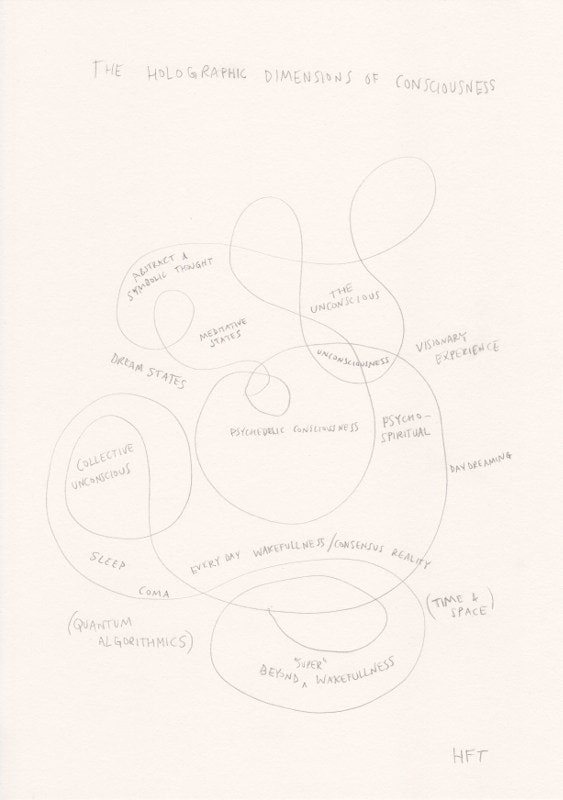 THE HOLOGRAPHIC DIMENSIONS OF CONSCIOUSNESS
ABSTRACT &
SYMBOLIC THOUGHT
THE
UNCONSCIOUS
MEDITATIVE
STATES
VISIONARY
EXPERIENCE
UNCONSCIOUSNESS
DREAM STATES
PSYCHEDELIC CONCIOUSNESS
PSYCHO-
SPIRITUAL
COLLECTIVE
UNCONSCIOUS
DAYDREAMING
EVERY DAY WAKEFULLNESS/CONSENSUS REALITY
SLEEP
COMA
(TIME &
SPACE)
(QUANTUM
ALGORITHMICS)
"SUPER"
BEYOND ^ WAKEFULLNESS
HFT